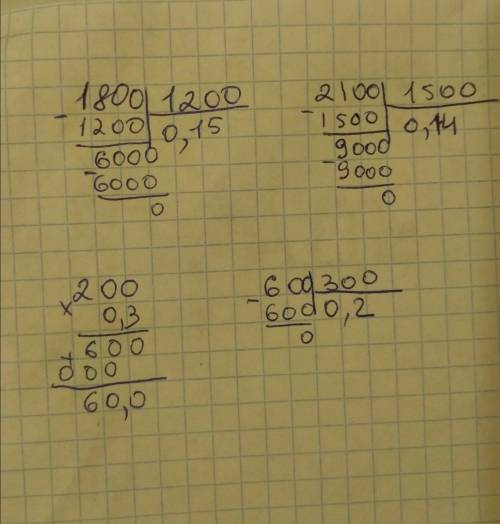 - 1800 | 1200
1200 | 0,15
6000
- 6000
0
2100 | 1500
- 1500 | 0,14
9000
- 9000
0
x 200
0,3
600
+ 000
60,0
- 600 | 300
600 | 0,2
0